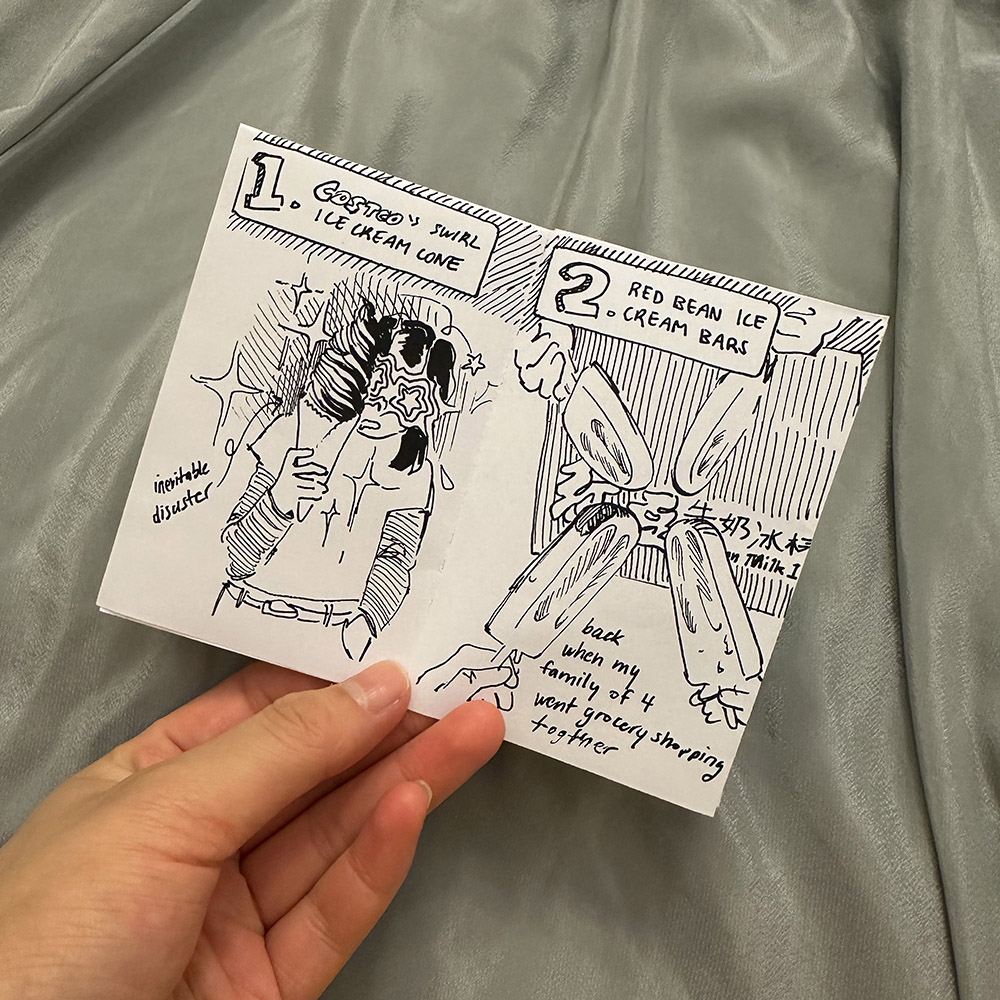 1.
COSTCO's SWIRL
ICE CREAM CONE
inevitable
disaster
2.
RED BEAN ICE
CREAM BARS
奶冰
Milk
back
when my
family of 4
went grocery shopping
togther